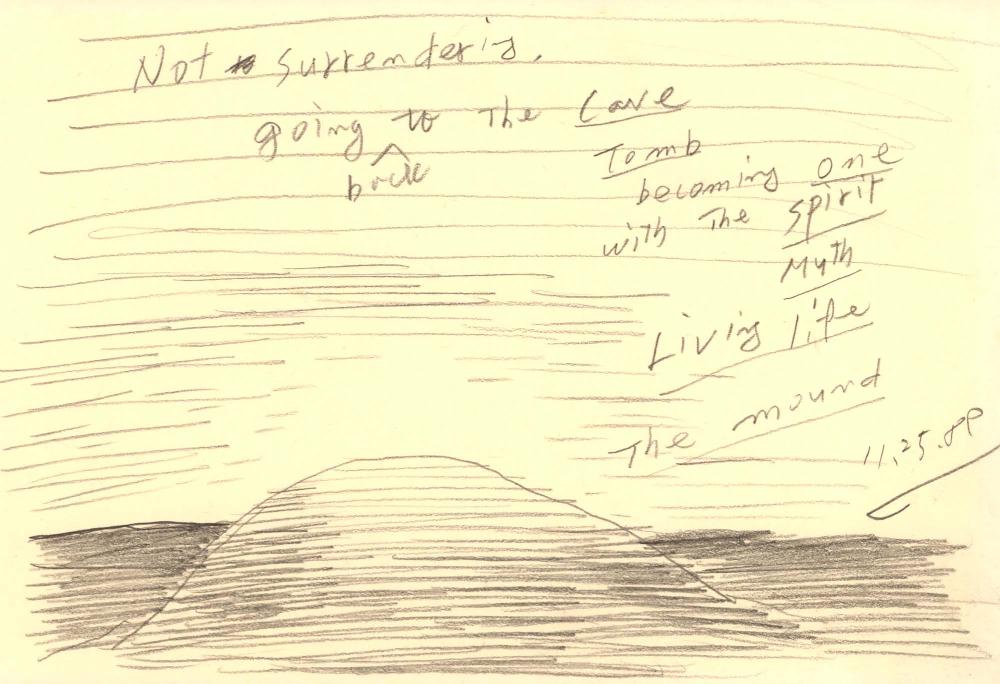 Not surrendering,
going to the Cave
back
Tomb
becoming one
with the spirit
Myth
Living life
The mound